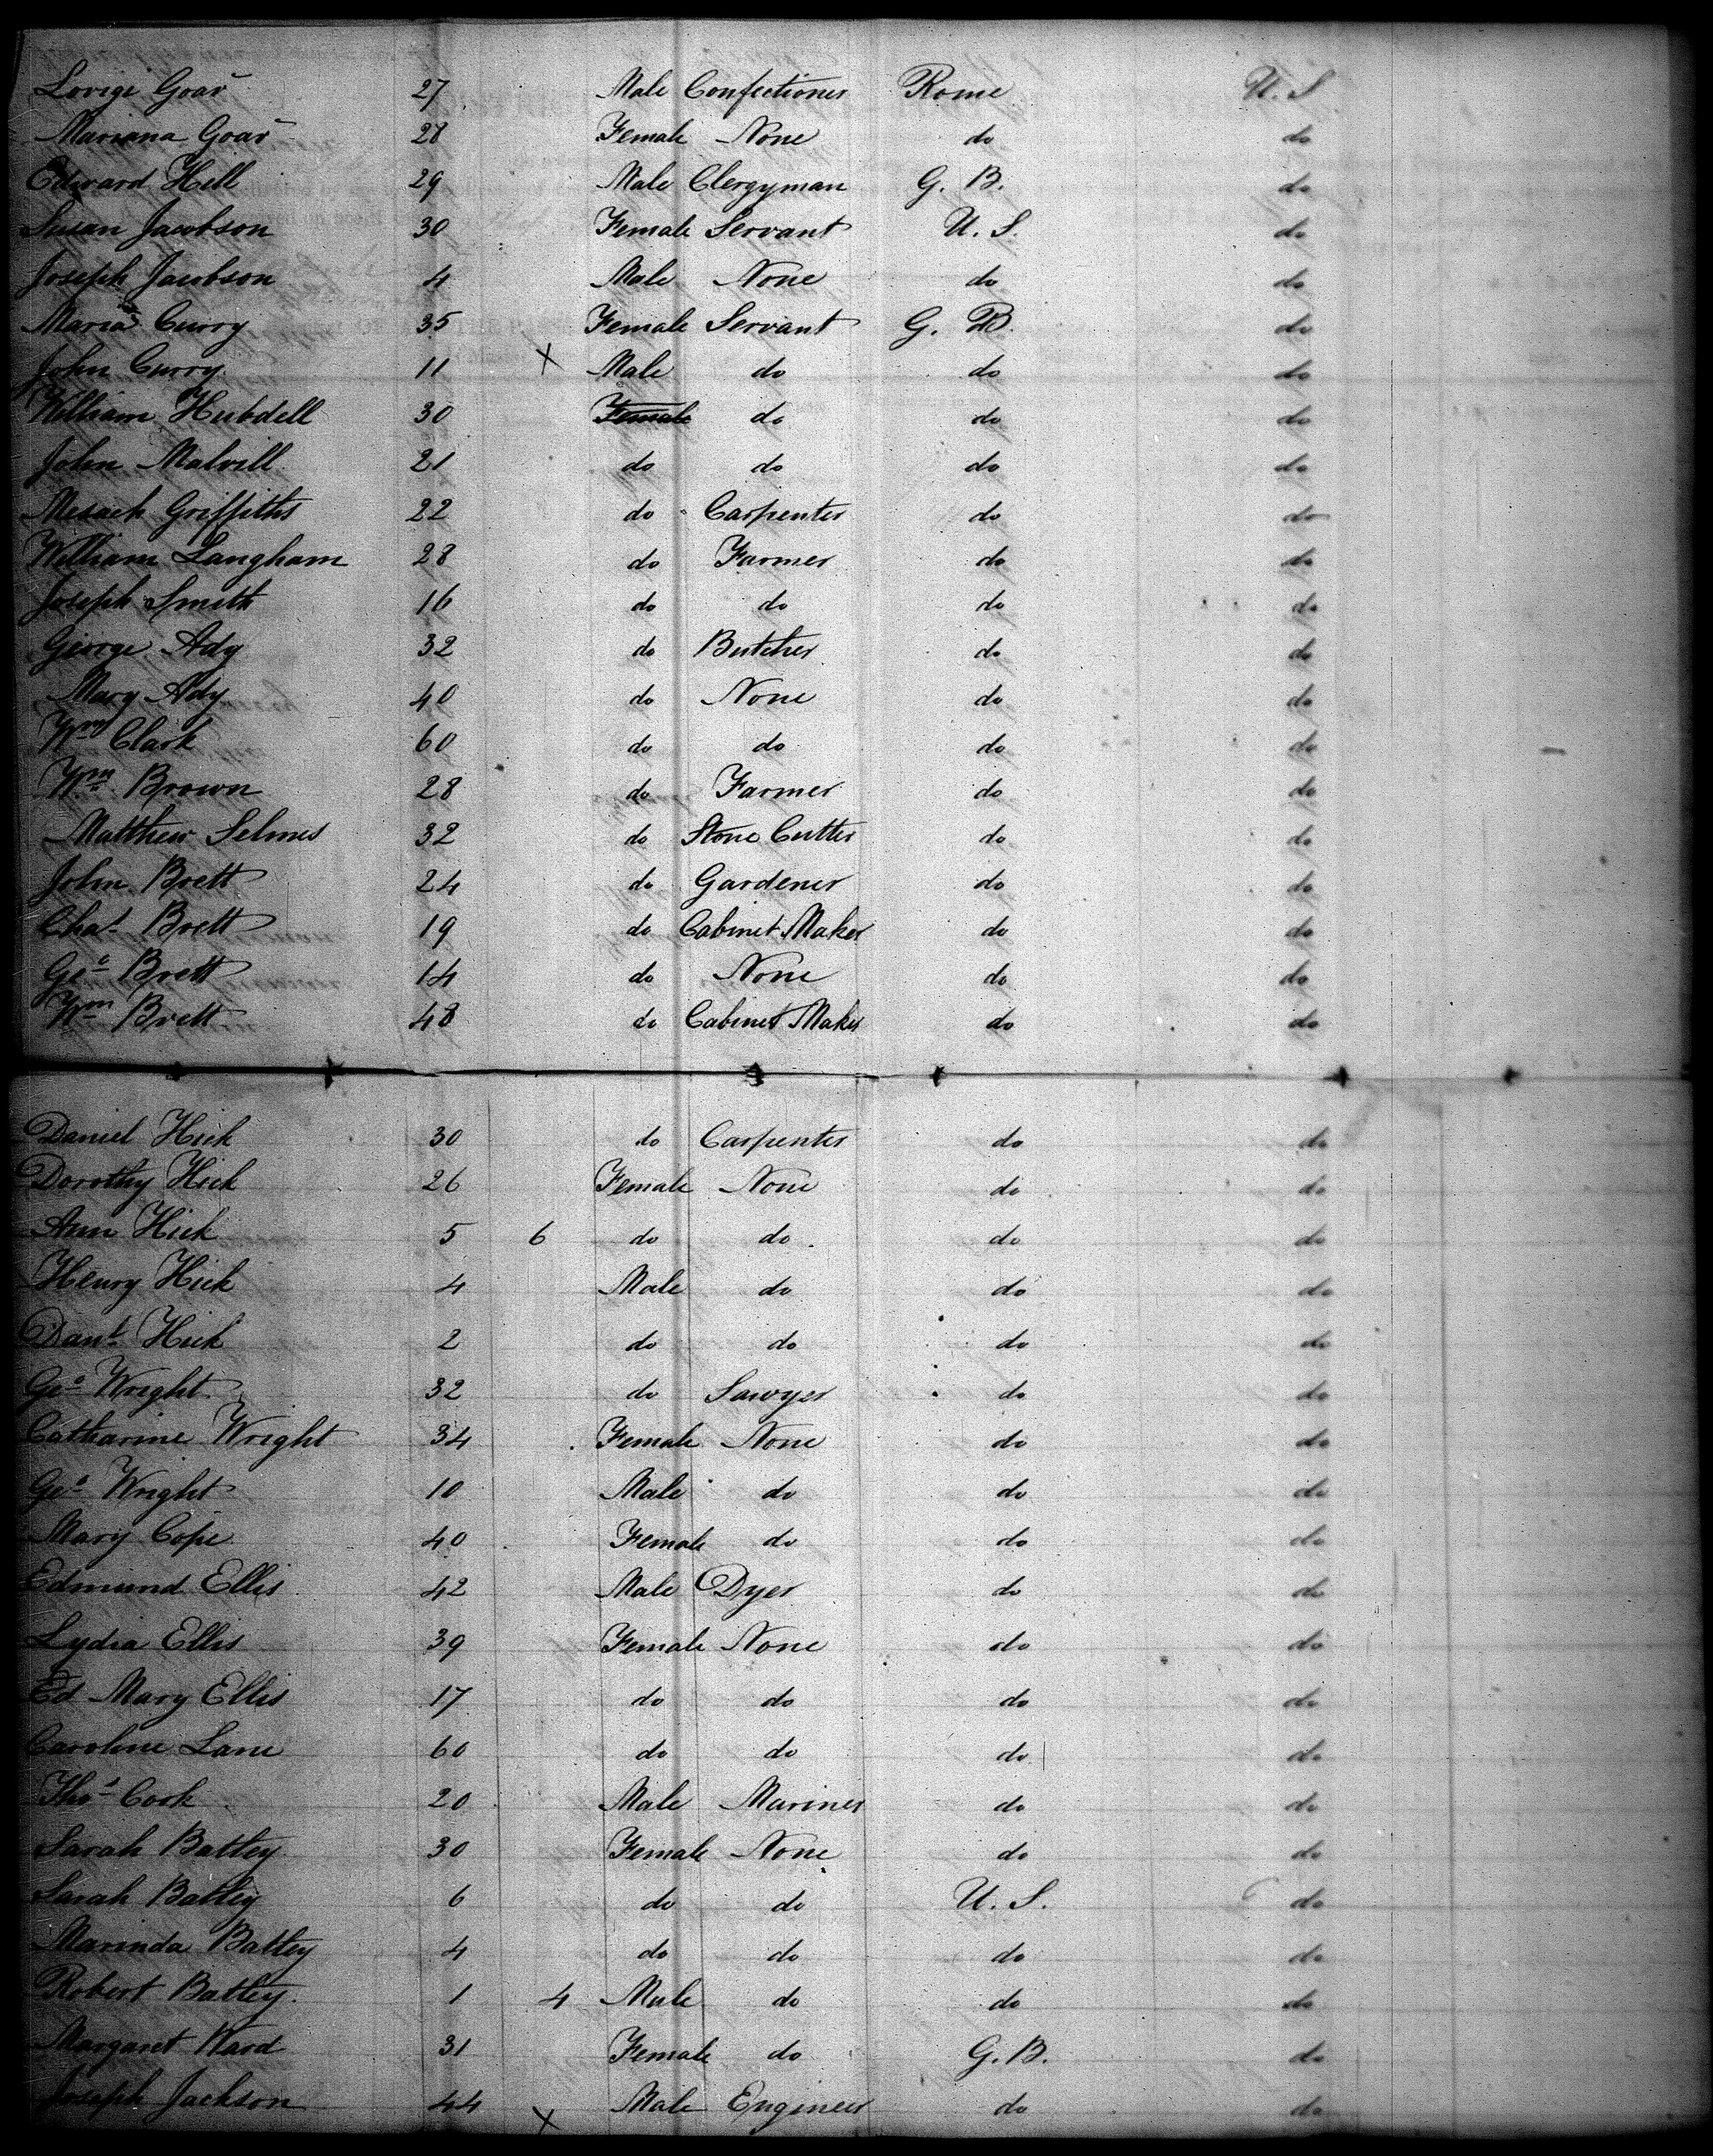 Lovige Goar 27 Male Confectioner Rome U. S
Mariana Goar 28 Female None do do
Edward Hill 29 Male Clergyman G. B. do
Susan Jacobson 30 Female Servant U. S. do
Joseph Jacobson 4 Male None do do
Maria Curry 35 Female Servant G. B. do
John Curry 11 X Male do do do
William Hubdell 30 Female do do do
John Malvill 21 do do do do
Mesach Griffiths 22 do Carpenter do do
William Langham 28 do Farmer do do
Joseph Smith 16 do do do do
George Ady 32 do Butcher do do
Mary Ady 40 do None do do
Wm Clark 60 do do do do
Wm Brown 28 do Farmer do do
Matthew Selmes 32 do Stone Cutter do do
John Brett 24 do Gardener do do
Chas Brett 19 do Cabinet Maker do do
Geo Brett 14 do None do do
Wm Brett 48 do Cabinet Maker do do
Daniel Hick 30 do Carpenter do do
Dorothy Hick 26 Female None do do
Ann Hick 5 6 do do do do
Henry Hick 4 Male do do do
Danl Hick 2 do do do do
Geo Wright 32 do Sawyer do do
Catharine Wright 34 Female None do do
Geo Wright 10 Male do do do
Mary Cope 40 Female do do do
Edmund Ellis 42 Male Dyer do do
Lydia Ellis 39 Female None do do
Ed Mary Ellis 17 do do do do
Caroline Lane 60 do do do do
Thos Cook 20 Male Mariner do do
Sarah Battey 30 Female None do do
Sarah Battey 6 do do U. S. do
Marinda Battey 4 do do do do
Robert Battey 1 4 Male do do do
Margaret Ward 31 Female do G. B. do
Joseph Jackson 44 X Male Engineer do do